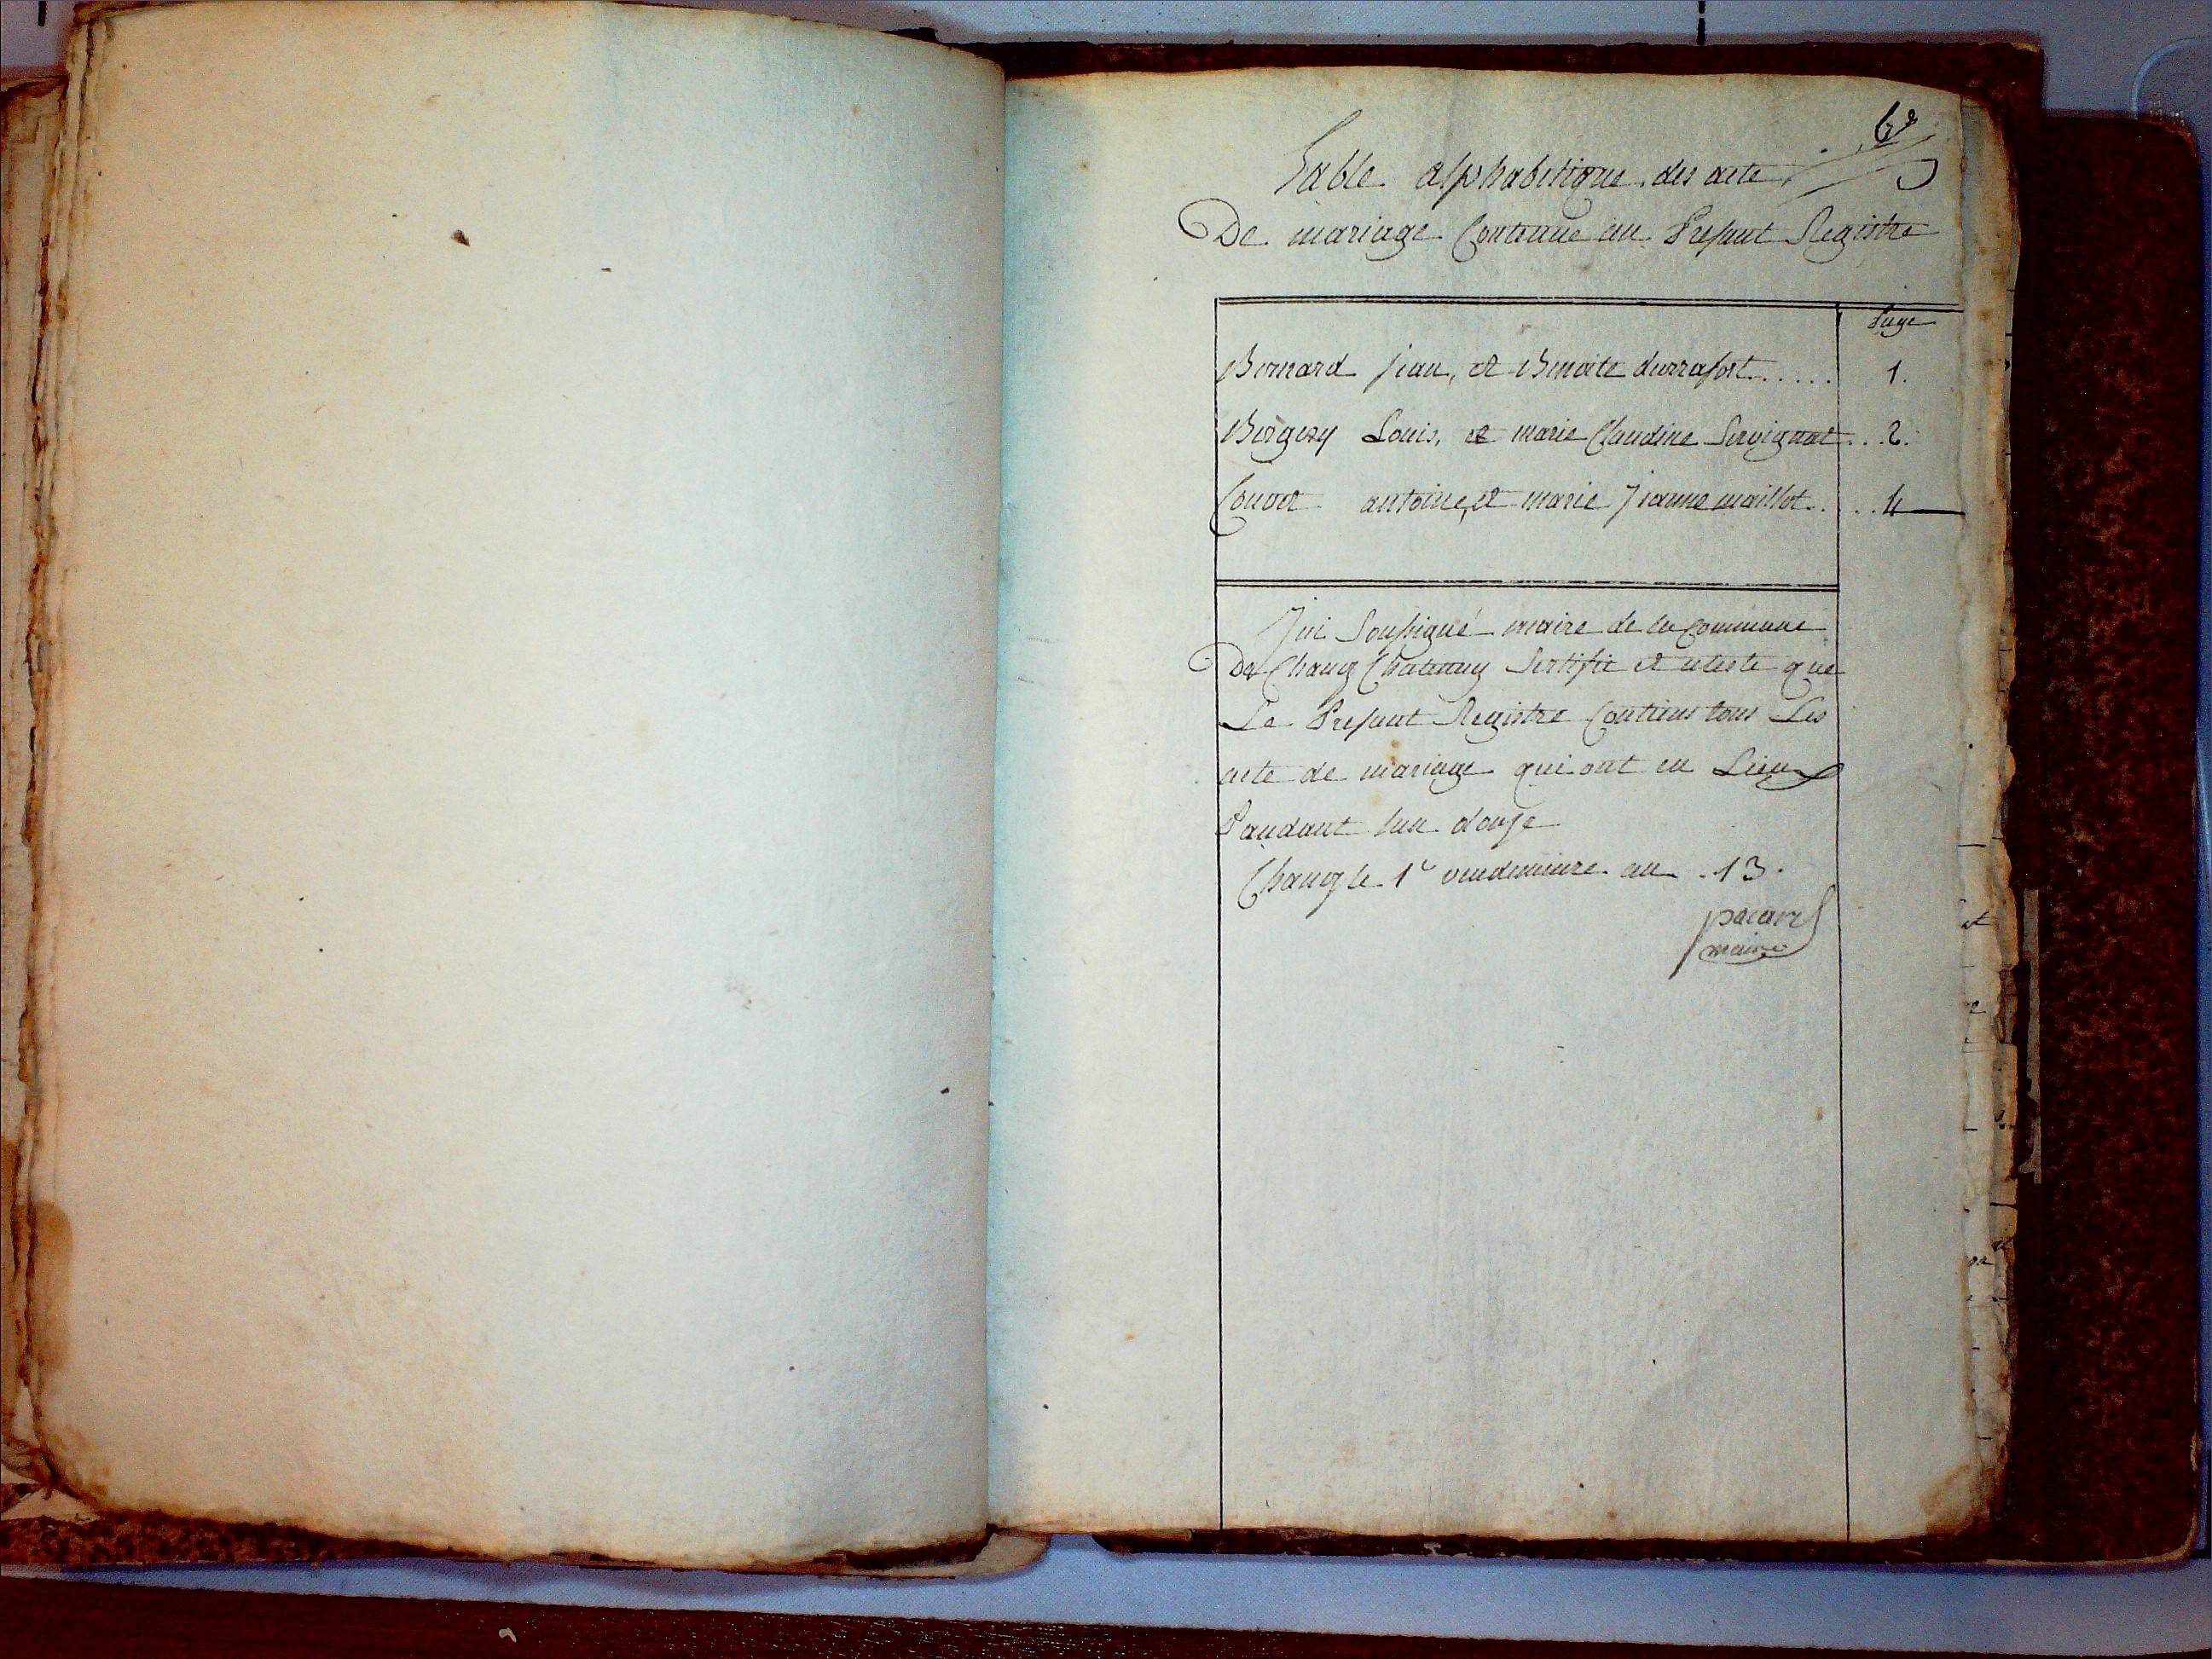 6e
Table alphabetique des acte
De mariage Contenue au Presant Registre
Page
Bernard jean, et Benoite durrafort..... 1.
Bergery Louis, et marie Claudine Servignat...2.
Couvert antoine, et marie jeanne maillot....4
Jai Soussigné maire de la Commune
De Changy Chatenay Sertifie et ateste que
Le Presant Registre Contiens tous Les
acte de mariage qui ont eu Lieux
Pandant lan douze
Changy le 1e vendemiaire an 13.
pacard
maire